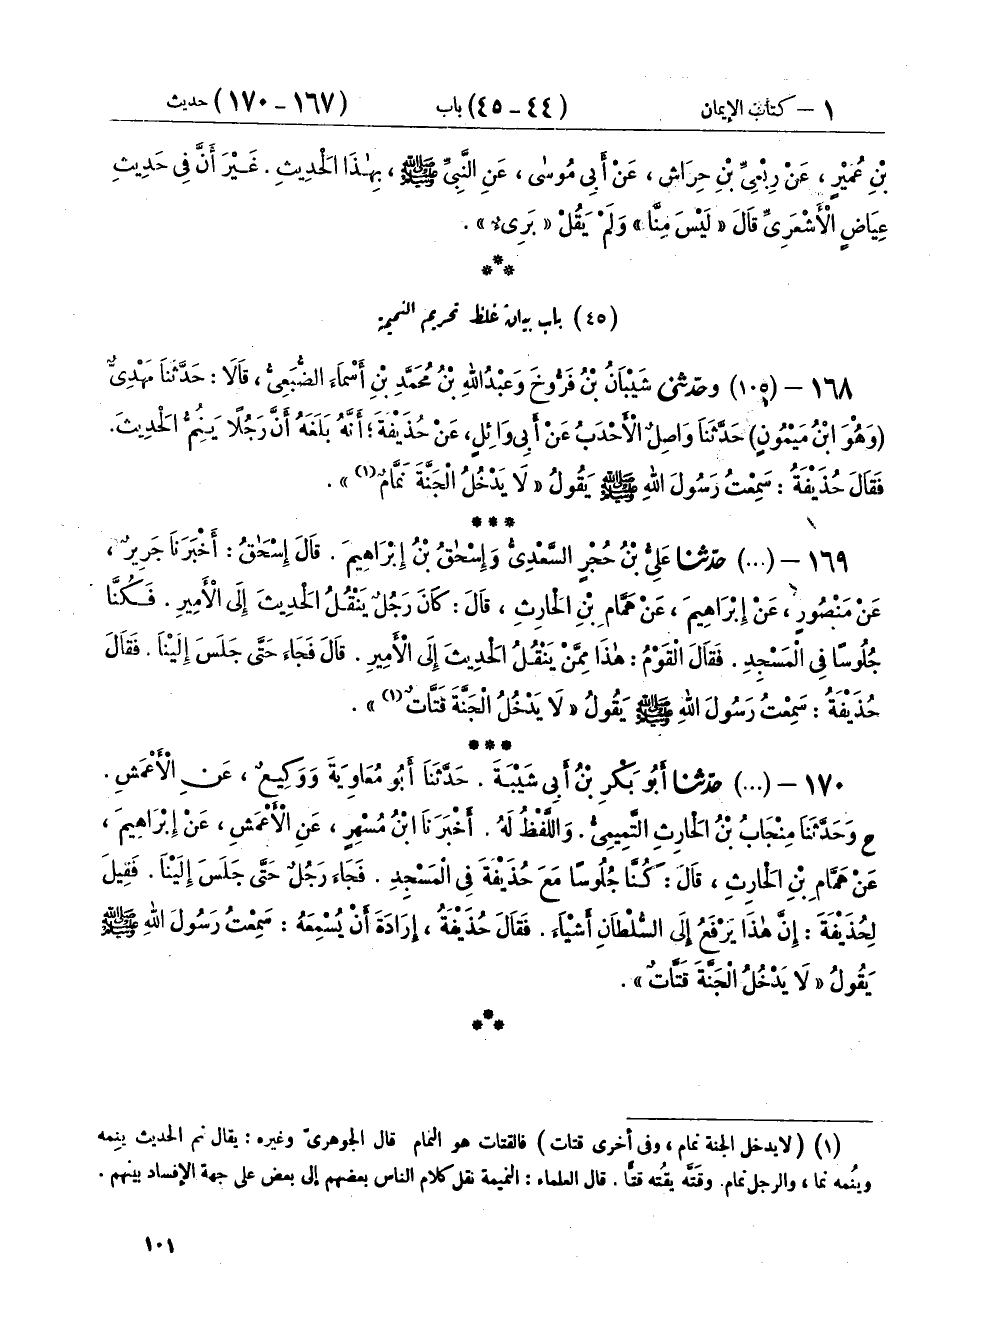 ١ – كتاب الإيمان (٤٤ – ٤٥) باب (١٦٧ – ١٧٠) حديث
بْنِ عُمَيْرٍ ، عَنْ رِبْعِيِّ بْنِ حِرَاشٍ ، عَنْ أَبِي مُوسَىٰ ، عَنِ النَّبِيِّ ﷺ ، بِهٰذَا الْحَدِيثِ . غَيْرَ أَنَّ فِي حَدِيثِ
عِيَاضٍ الْأَشْعَرِيِّ قَالَ « لَيْسَ مِنَّا » وَلَمْ يَقُلْ « بَرِىءٌ » .
***
(٤٥) باب بيان غلظ تحريم النميمة
١٦٨ – (١٠٥) وحدثنى شَيْبَانُ بْنُ فَرُّوخَ وَعَبْدُاللهِ بْنُ مُحَمَّدِ بْنِ أَسْمَاءَ الضُّبَعِيُّ ، قَالَا : حَدَّثَنَا مَهْدِيٌّ
(وَهُوَ ابْنُ مَيْمُونٍ) حَدَّثَنَا وَاصِلٌ الْأَحْدَبُ عَنْ أَبِي وَائِلٍ، عَنْ حُذَيْفَةَ ؛ أَنَّهُ بَلَغَهُ أَنَّ رَجُلًا يَنِمُّ الْحَدِيثَ.
فَقَالَ حُذَيْفَةُ : سَمِعْتُ رَسُولَ اللهِ ﷺ يَقُولُ « لَا يَدْخُلُ الْجَنَّةَ نَمَّامٌ(١) » .
***
١٦٩ – (...) حدثنا عَلِيُّ بْنُ حُجْرٍ السَّعْدِيُّ وَإِسْحٰقُ بْنُ إِبْرَاهِيمَ . قَالَ إِسْحٰقُ : أَخْبَرَنَا جَرِيرٌ ،
عَنْ مَنْصُورٍ ، عَنْ إِبْرَاهِيمَ ، عَنْ هَمَّامِ بْنِ الْحَارِثِ ، قَالَ : كَانَ رَجُلٌ يَنْقُلُ الْحَدِيثَ إِلَى الْأَمِيرِ . فَكُنَّا
جُلُوسًا فِي الْمَسْجِدِ . فَقَالَ الْقَوْمُ : هٰذَا مِمَّنْ يَنْقُلُ الْحَدِيثَ إِلَى الْأَمِيرِ . قَالَ فَجَاءَ حَتَّى جَلَسَ إِلَيْنَا . فَقَالَ
حُذَيْفَةُ : سَمِعْتُ رَسُولَ اللهِ ﷺ يَقُولُ « لَا يَدْخُلُ الْجَنَّةَ قَتَّاتٌ(١) » .
***
١٧٠ – (...) حدثنا أَبُو بَكْرِ بْنُ أَبِي شَيْبَةَ . حَدَّثَنَا أَبُو مُعَاوِيَةَ وَوَكِيعٌ ، عَنِ الْأَعْمَشِ .
ح وَحَدَّثَنَا مِنْجَابُ بْنُ الْحَارِثِ التَّمِيمِيُّ. وَاللَّفْظُ لَهُ . أَخْبَرَنَا ابْنُ مُسْهِرٍ ، عَنِ الْأَعْمَشِ ، عَنْ إِبْرَاهِيمَ ،
عَنْ هَمَّامِ بْنِ الْحَارِثِ ، قَالَ : كُنَّا جُلُوسًا مَعَ حُذَيْفَةَ فِي الْمَسْجِدِ . فَجَاءَ رَجُلٌ حَتَّى جَلَسَ إِلَيْنَا . فَقِيلَ
لِحُذَيْفَةَ : إِنَّ هٰذَا يَرْفَعُ إِلَى السُّلْطَانِ أَشْيَاءَ . فَقَالَ حُذَيْفَةُ ، إِرَادَةَ أَنْ يُسْمِعَهُ : سَمِعْتُ رَسُولَ اللهِ ﷺ
يَقُولُ « لَا يَدْخُلُ الْجَنَّةَ قَتَّاتٌ » .
***
(١) (لايدخل الجنة نمام ، وفى أخرى قتات ) فالقتات هو النمام قال الجوهرىّ وغيره : يقال نم الحديث ينِمه
وينُمه نما ، والرجل نمام. وقتَّه يقُته قتًّا . قال العلماء : النميمة نقل كلام الناس بعضهم إلى بعض على جهة الإفساد بينهم .
١٠١